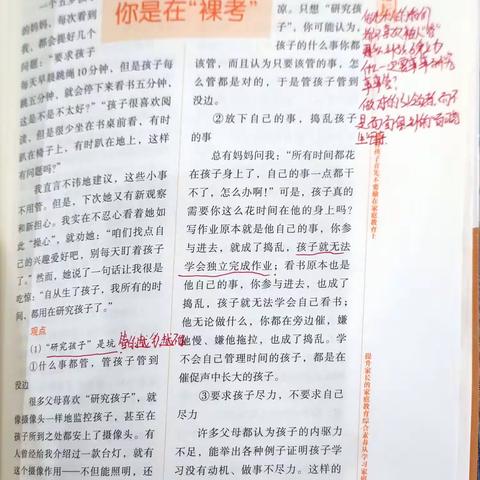 你是在“裸考”
一个五岁孩子
的妈妈，每次看到
我，都会提好几个
问题：“要求孩子
每天早晨跳绳10分钟，但是孩子每
跳五分钟，就会停下来看书五分钟，
这是不是不太好？”“孩子很喜欢阅
读，但是很少坐在书桌前看，有时
趴在椅子上，有时趴在地上，这样
有问题吗？”
我直言不讳地建议，这些小事
不用管。但是，下次她又有新观察
和新担心。我实在不忍心看着她如
此“操心”，就劝她：“咱们找点自
己的兴趣爱好吧，别每天盯着孩子
了。”然而，她说了一句话让我很是
吃惊：“自从生了孩子，我所有的时
间、都用在研究孩子了。”
观点
(1)“研究孩子”是坑
①什么事都管，管孩子管到
没边
很多父母喜欢“研究孩子”，就
像摄像头一样地监控孩子，甚至在
孩子所到之处都安上了摄像头。有
人曾经给我介绍过一款台灯，就有
这个摄像作用——不但能照明，还
凉。只想“研究孩
子”，你可能认为，
孩子的什么事你都
该管，而且认为只要该管的事，怎
么管都是对的，于是管孩子管到
没边。
②放下自己的事，捣乱孩子
的事
总有妈妈问我：“所有时间都花
在孩子身上了，自己的事一点都干
不了，怎么办啊！”可是，孩子真的
需要你这么花时间在他的身上吗？
写作业原本就是他自己的事，你参
与进去，就成了捣乱，孩子就无法
学会独立完成作业；看书原本也是
他自己的事，你参与进去，也成了
捣乱，孩子就无法学会自己看书；
他无论做什么，你都在旁边催，嫌
他慢、嫌他拖拉，也成了捣乱。学
不会自己管理时间的孩子，都是在
催促声中长大的孩子。
③要求孩子尽力，不要求自己
尽力
许多父母都认为孩子的内驱力
不足，能举出各种例子证明孩子学
习没有动机、做事不尽力。这样的
孩子首先不要输在家庭教育上
提升家长的家庭教育综合素养从学习家庭